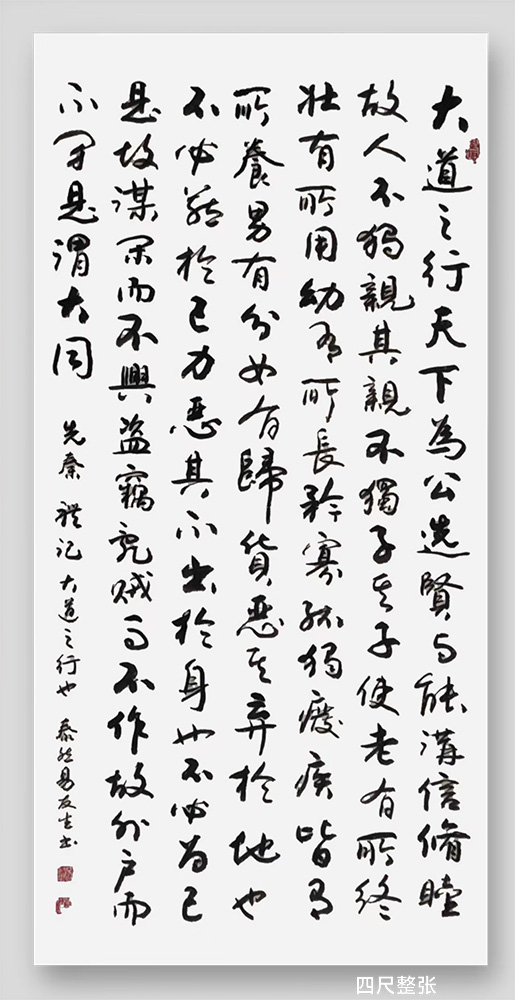 大道之行天下為公選賢与能講信脩睦
故人不獨親其親不獨子其子使老有所終
壯有所用幼有所長矜寡孤獨癈疾皆有
所養男有分女有歸貨惡其棄於地也
不必藏於己力惡其不出於身也不必為己
是故謀閉而不興盜竊亂賊而不作故外戶而
不閉是謂大同 先秦 禮记 大道之行也 泰然易友生书
四尺整张